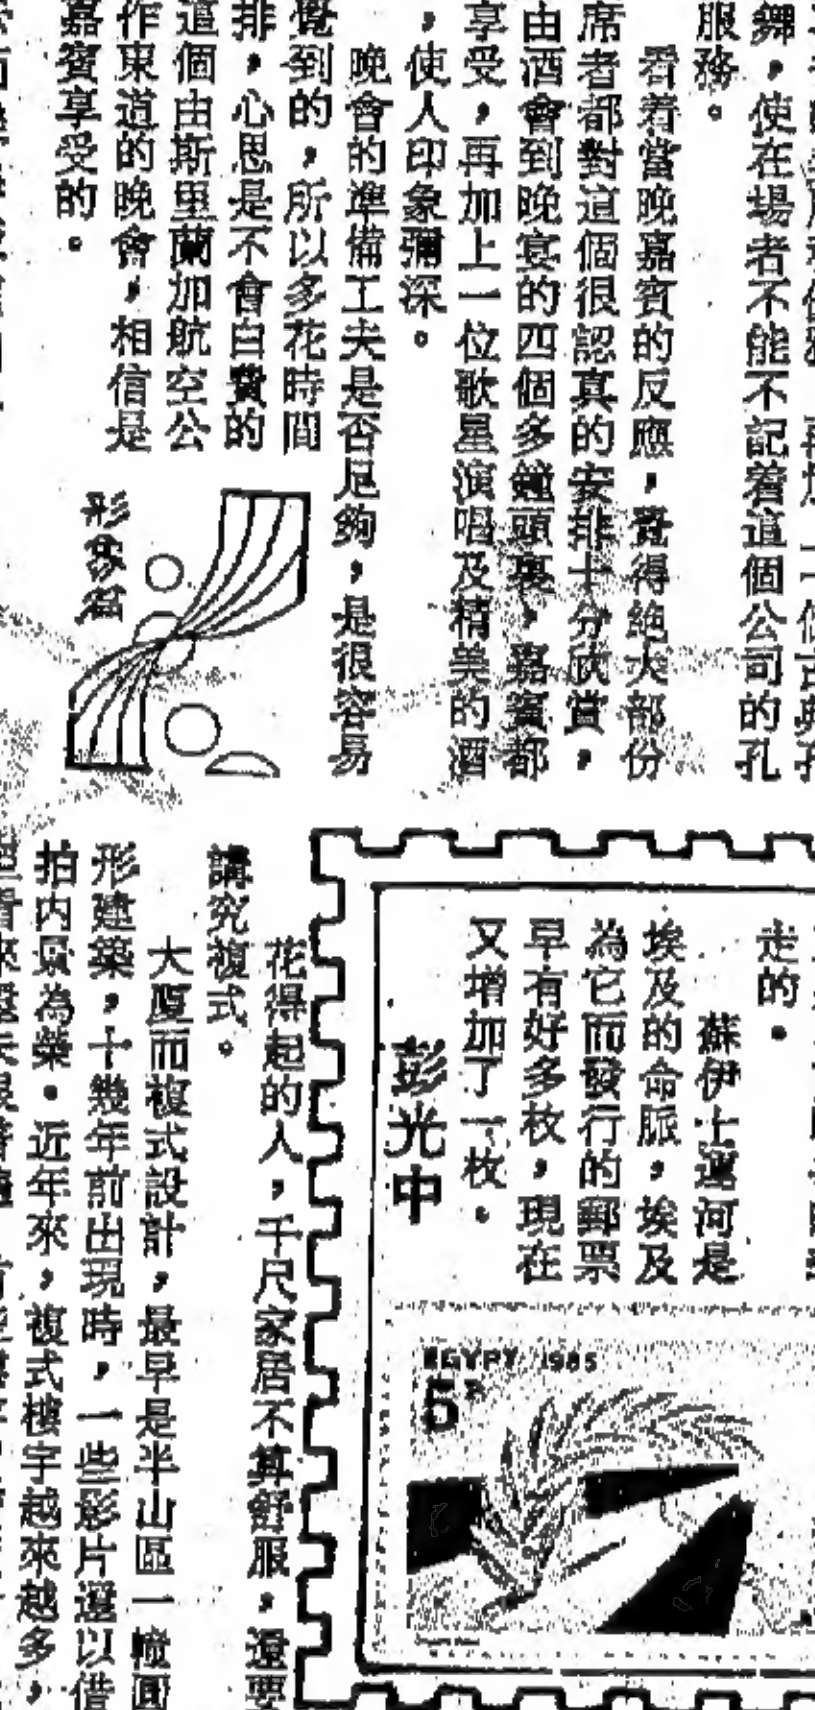 舞，使在場者不能不記着這個公司的孔
服務。
看着當晚嘉賓的反應，覺得絶大部份
席者都對這個很認真的安排十分欣賞，
由酒會到晚宴的四個多鐘頭裏，嘉賓都
享受，再加上一位歌星演唱及精美的酒
，使人印象彌深。
晚會的準備工夫是否足夠，是很容易
覺到的，所以多花時間
排，心思是不會白費的
這個由斯里蘭加航空公
作東道的晚會，相信是
嘉賓享受的。
形象篇
走的。
蘇伊士運河是
埃及的命脈，埃及
為它而發行的郵票
早有好多枚，現在
又增加了一枚。
彭光中
EGYPT 1985
5P
花得起的人，千尺家居不算舒服，還要
講究複式。
大廈而複式設計，最早是半山區一幢圓
形建築，十幾年前出現時，一些影片還以借
拍內景為榮。近年來，複式樓宇越來越多，